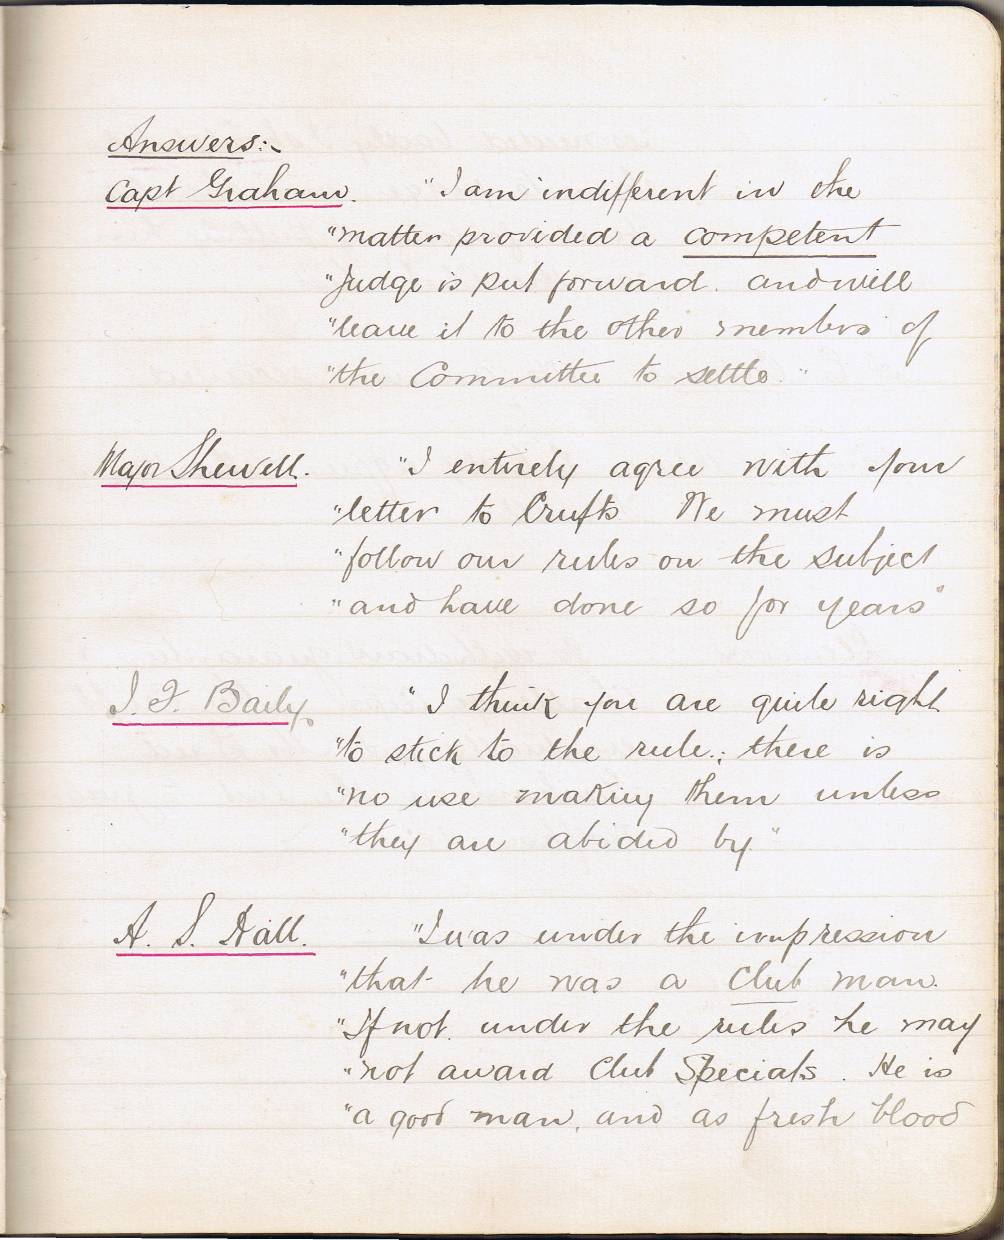 Answers:-
Capt Graham. "I am indifferent in the
"matter provided a competent
"Judge is put forward. and will
"leave it to the other members of
"the Committee to settle."
Major Shewell. "I entirely agree with your
"letter to Crufts We must
"follow our rules on the subject
"and have done so for years"
J. F. Baily. "I think you are quite right
"to stick to the rule; there is
"no use making them unless
"they are abided by"
A. S. Hall. "I was under the impression
"that he was a Club man.
"If not. under the rules he may
"not award Club Specials. He is
"a good man, and as fresh blood